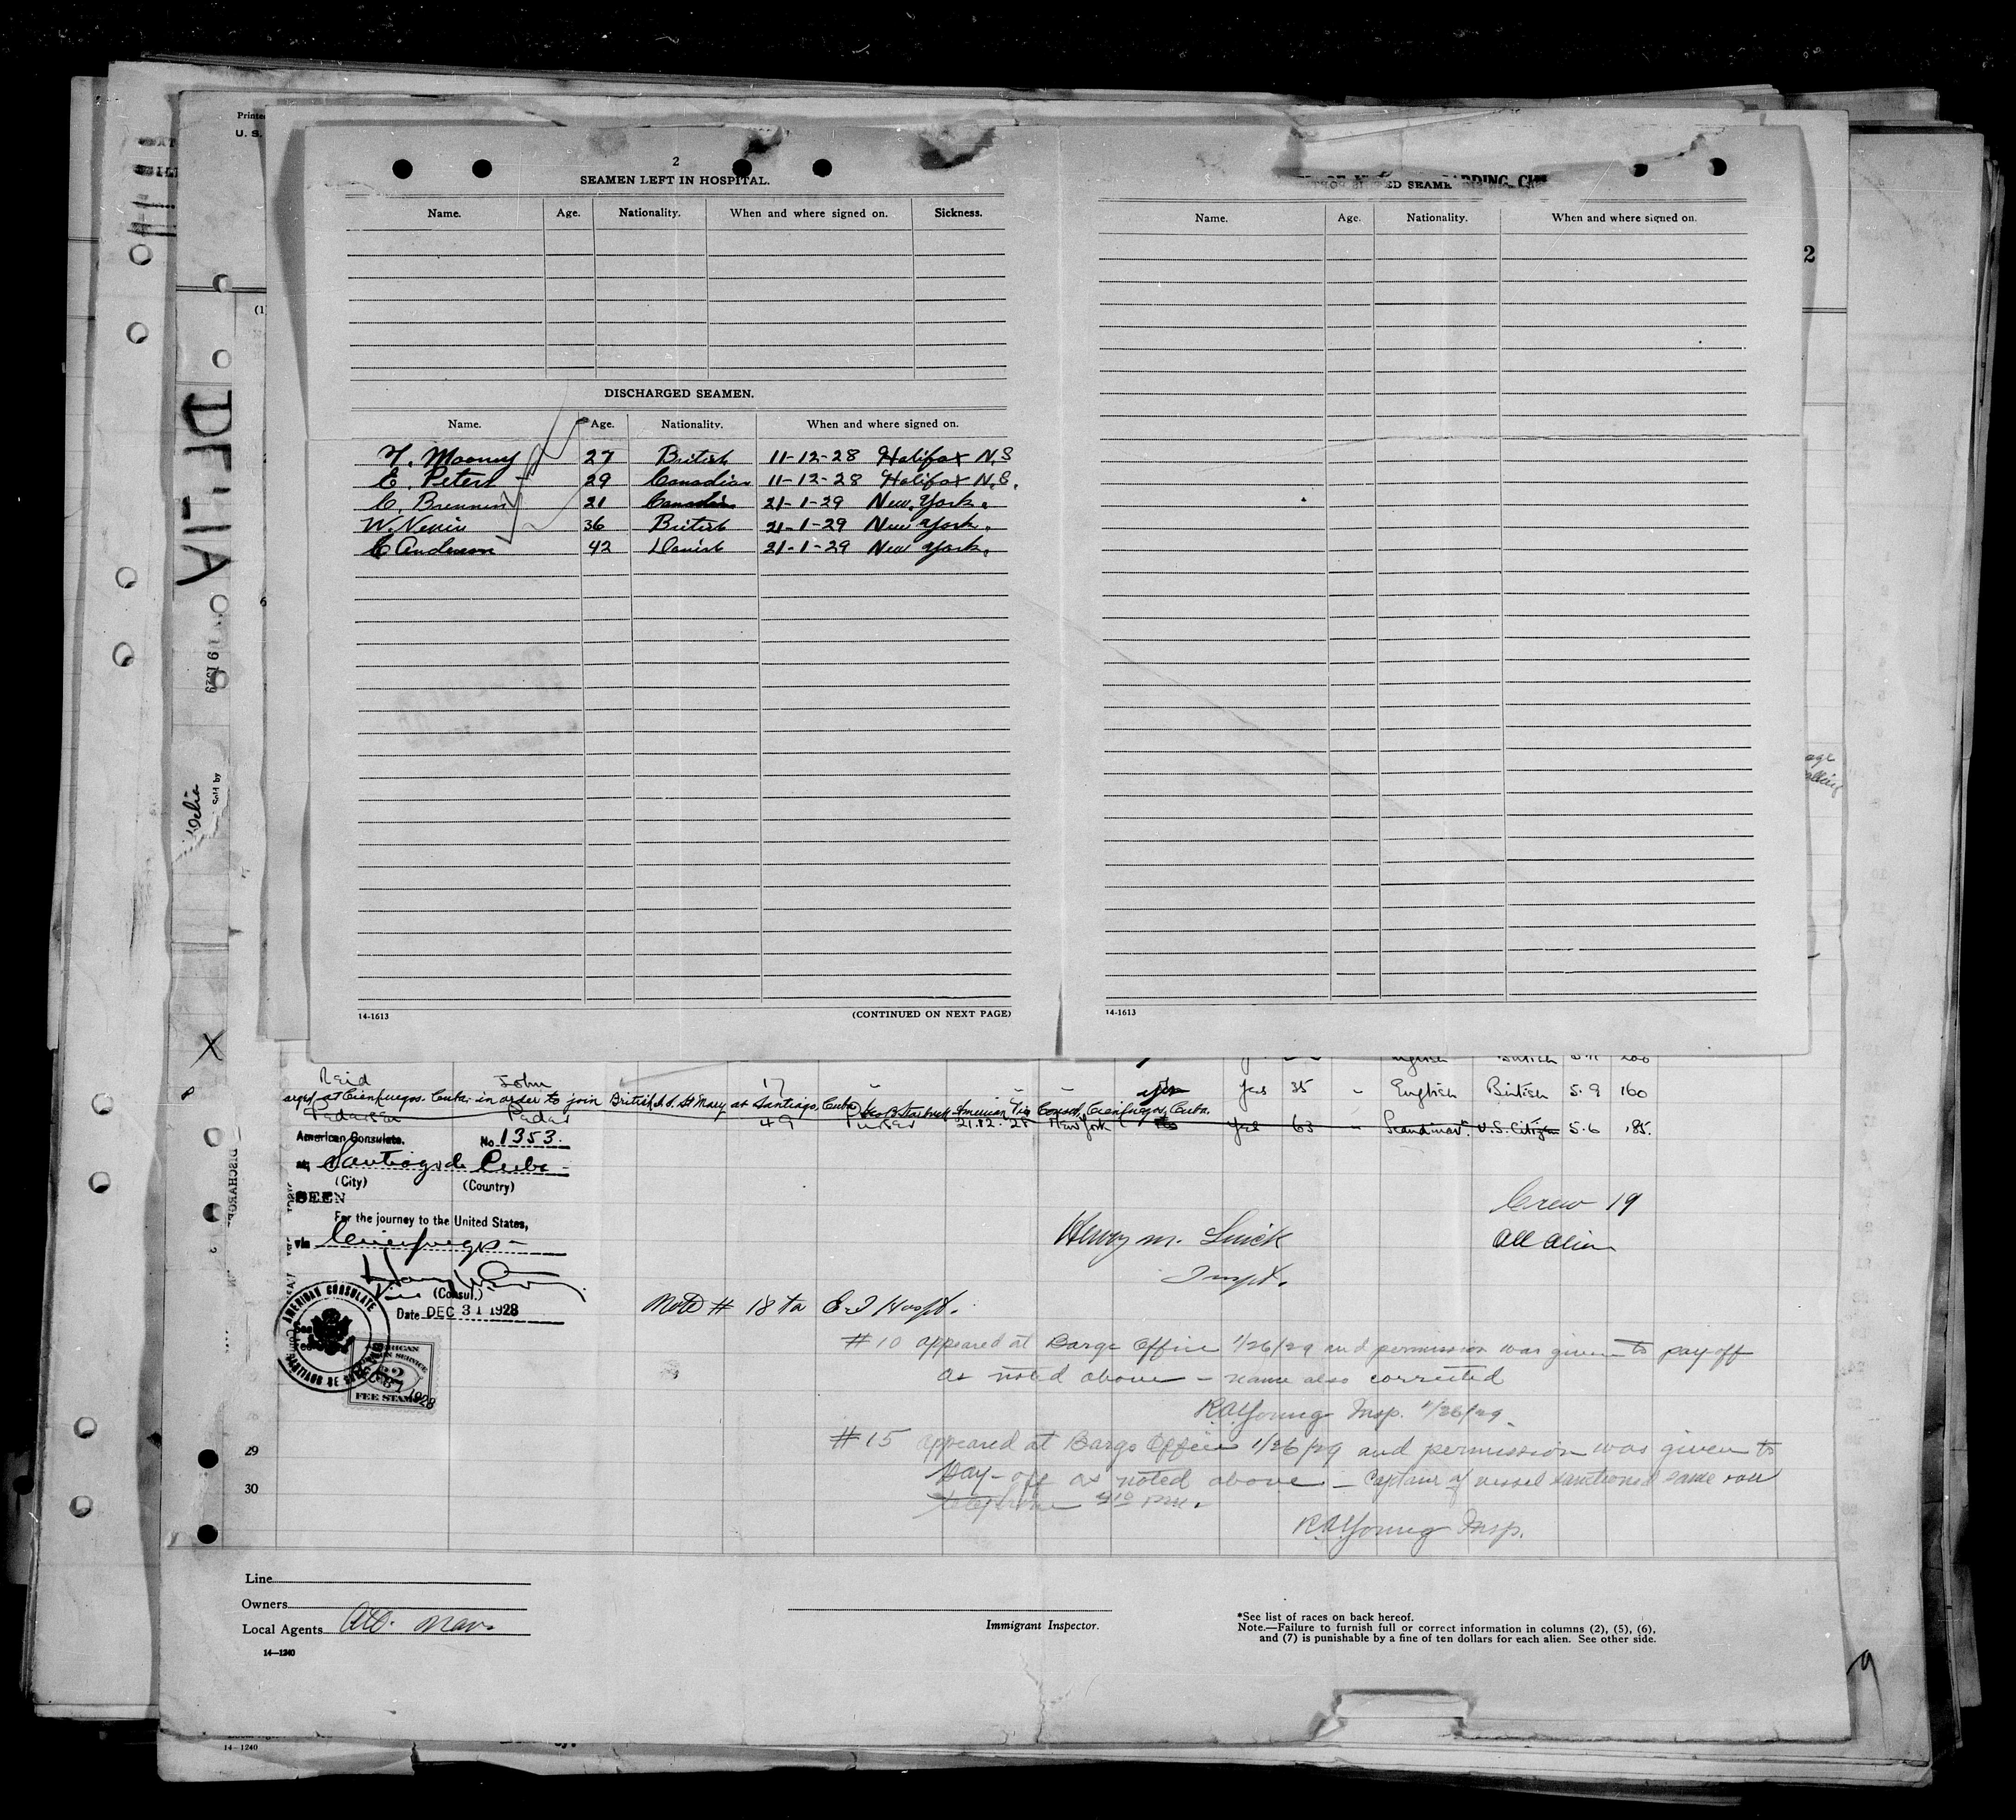 2
SEAMEN LEFT IN HOSPITAL.
Name. Age. Nationality. When and where signed on. Sickness.
DISCHARGED SEAMEN.
Name. Age. Nationality. When and where signed on.
Mooney 27 British 11-12-28 Halifax N.S
C. Peters 29 Canadian 11-12-28 Halifax N.S.
C. Brennin 21 Canadian 21-1-29 New York.
W. Nevin 36 British 21-1-29 New York.
C Anderson 42 Danish 21-1-29 New York.
14-1613 (CONTINUED ON NEXT PAGE)
Name. Age. Nationality. When and where signed on.
14-1613
2
Printe
U. S.
(1)
DELIA
Delia
Sold by
X
British 200
Reid John 17 " " " Yes Yes 35 - English British 5.9 160
at Cienfuegos, Cuba. in order to join British S.S. St Mary at Santiago, Cuba American Vice Consul, Cienfuegos, Cuba.
Pedersen Peder 49 Purser 21.12.28 New York Yes 63 - Scandinav. U.S. Citizen 5.6 185.
American Consulate. No 1353.
at Santiago de Cuba
(City) (Country)
SEEN
For the journey to the United States,
via Cienfuegos
Vice (Consul.)
Date DEC 31 1928
AMERICAN CONSULATE
SANTIAGO DE
AMERICAN
SERVICE
2
FEE STAMP
1928
Crew 19
All Alien
Henry M.
Inspt.
Note # 18 to E.I Hospt.
#10 appeared at Barge Office 1/26/29 and permission was given to pay off
as noted above - name also corrected
R.A. Young Insp. 1/26/29.
#15 appeared at Barge Office 1/26/29 and permission was given to
Pay-off as noted above - Captain of vessel sanctioned same
telephone 4 10 P.M.
R.A. Young Insp.
29
30
Line
Owners
Local Agents Atl. Nav.
14-1240
Immigrant Inspector.
*See list of races on back hereof.
Note.—Failure to furnish full or correct information in columns (2), (5), (6),
and (7) is punishable by a fine of ten dollars for each alien. See other side.
9
14-1240